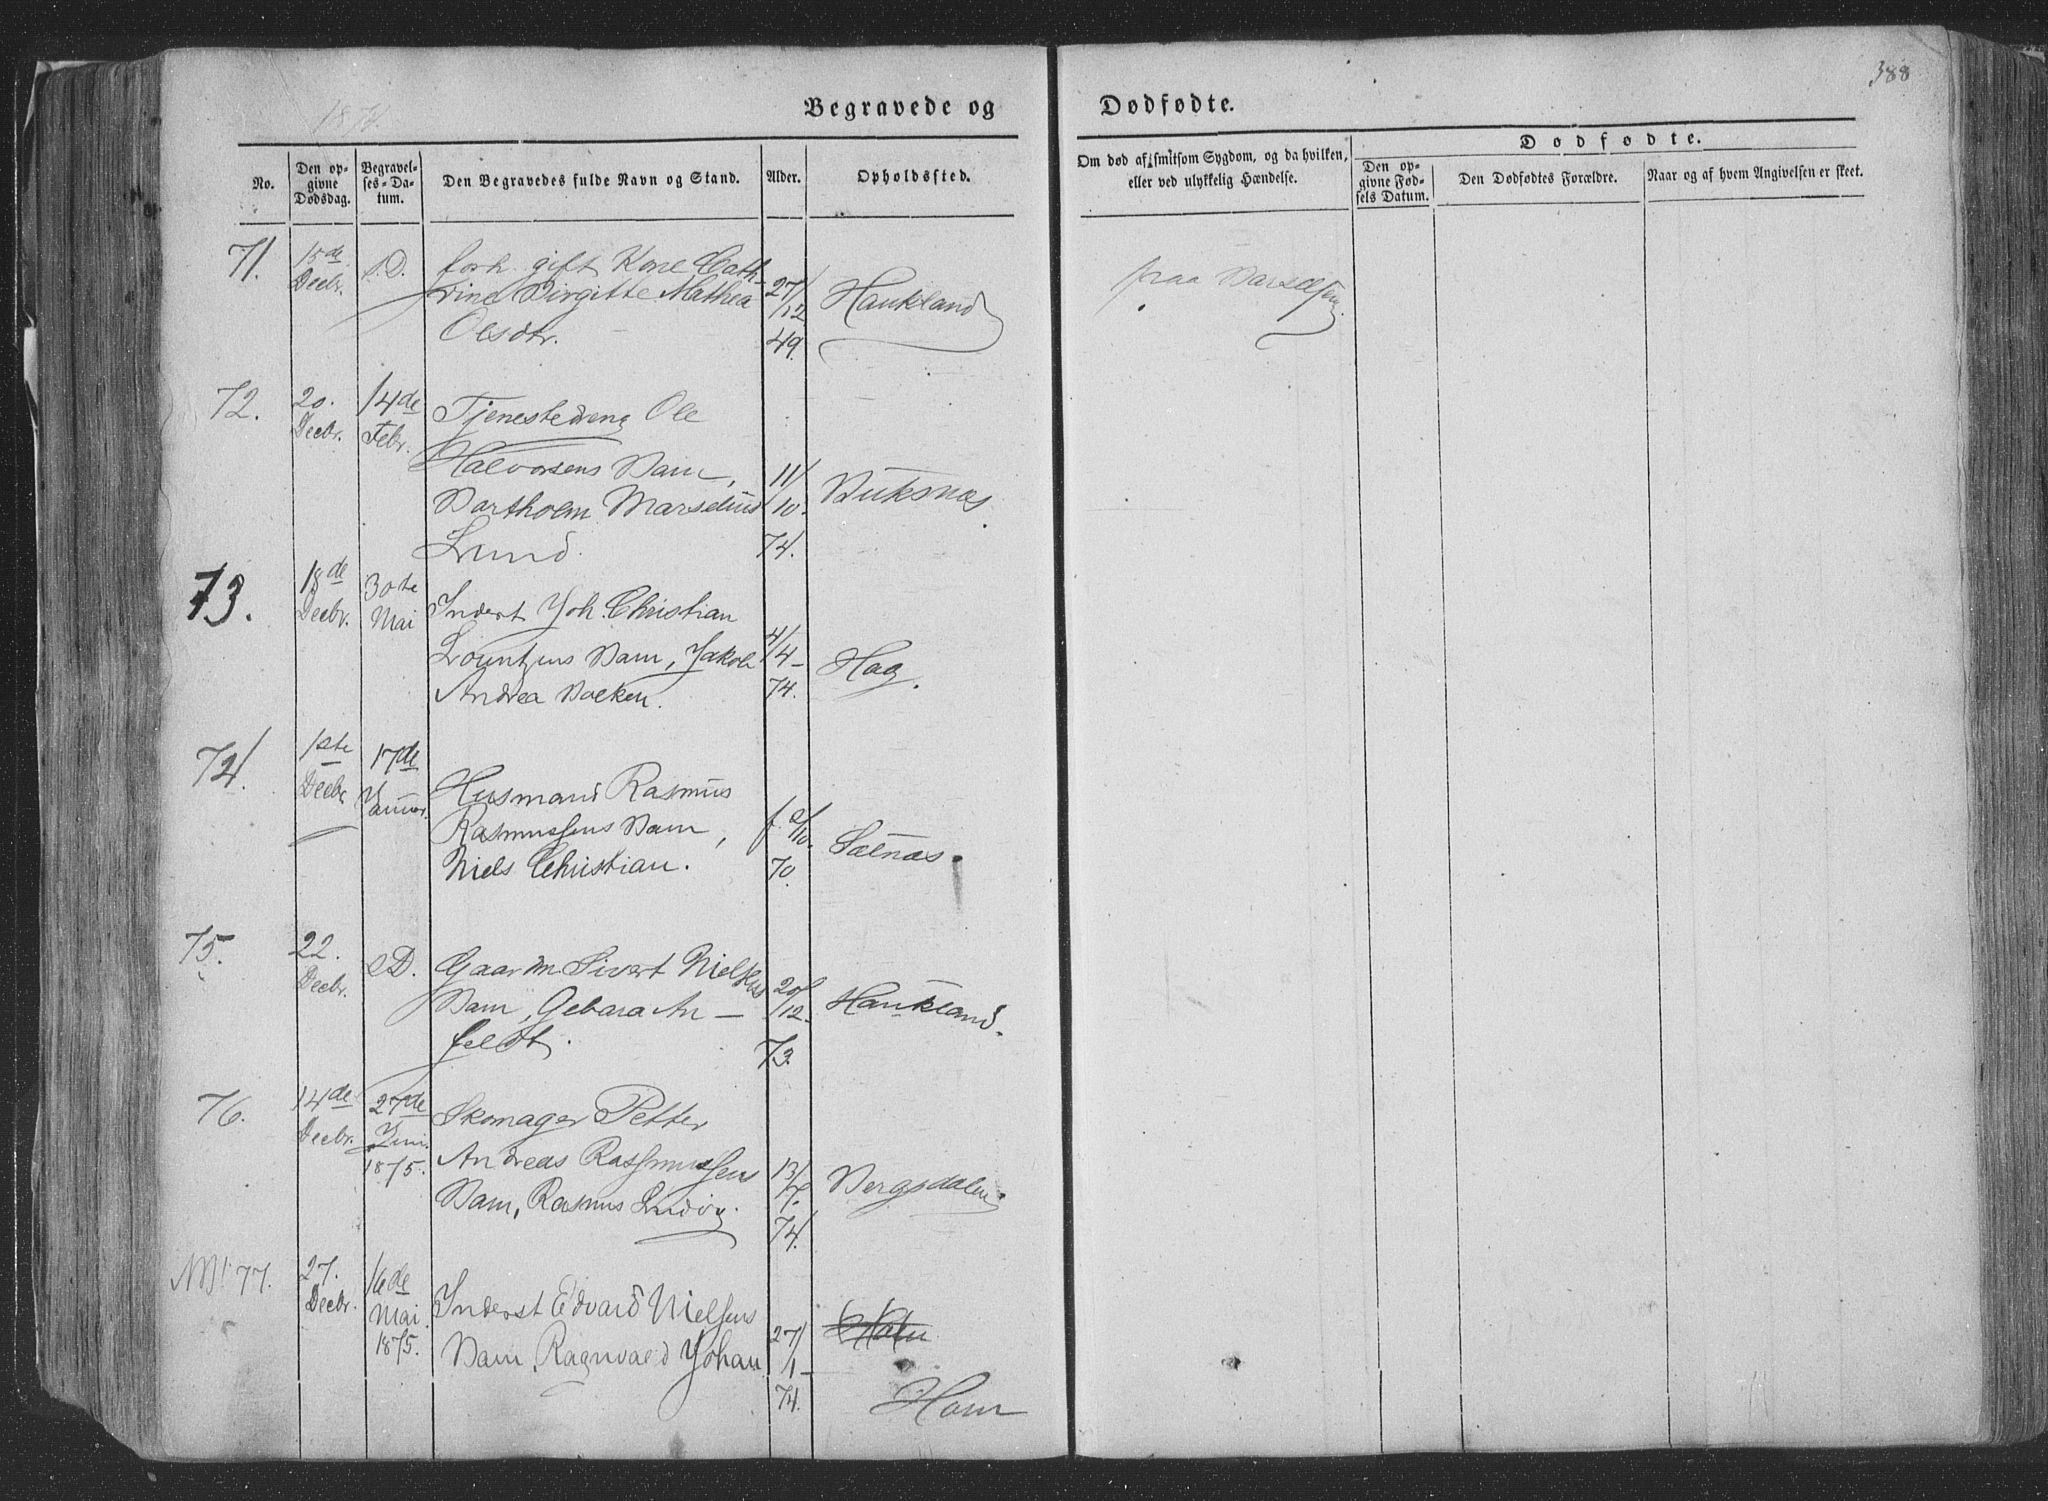 388
1874.
Begravede og Dødfødte.
No.
Den op-
givne
Dødsdag.
Begravel-
ses-Da-
tum.
Den Begravedes fulde Navn og Stand.
Alder.
Opholdssted.
Om død af smitsom Sygdom, og da hvilken,
eller ved ulykkelig Hændelse.
Dødfødte.
Den op-
givne Fød-
sels Datum.
Den Dødfødtes Forældre.
Naar og af hvem Angivelsen er skeet.
71.
15de
Decbr.
s.D.
forh. gift Kone Cath-
rine Birgitte Mathea
Olsdtr.
27/
/12
49.
Haukland
paa Barselseng
72.
20.
Decbr.
14de
Febr.
Tjenestedreng Ole
Halvorsens Barn,
Bartholm Marselius
Lund.
11/
/10-
74.
Buksnæs
73.
18de
Decbr.
30te
Mai
Inderst Joh. Christian
Lorentzens Barn, Jakob
Andrea Bocken.
4/
/4-
74.
Hag.
74.
1ste
Decbr.
17de
Januar.
Husmand Rasmus
Rasmussens Barn,
Niels Christian.
f.
/10.
70.
Solnæs.
75.
22.
Decbr.
s.D.
Gaardm Sivert Nielsens
Barn, Gebara An-
feldt.
20/
/12.
73.
Haukland.
76.
14de
Decbr.
27de
Juni.
1875.
Skomager Petter
Andreas Rasmussens
Barn, Rasmus Ludvig.
13/
/7.
74.
Bergsdalen.
No. 77.
27.
Decbr.
16de
Mai.
1875.
Inderst Edvard Nielsens
Barn, Ragnvald Johan
27/
/1-
74.
Holm